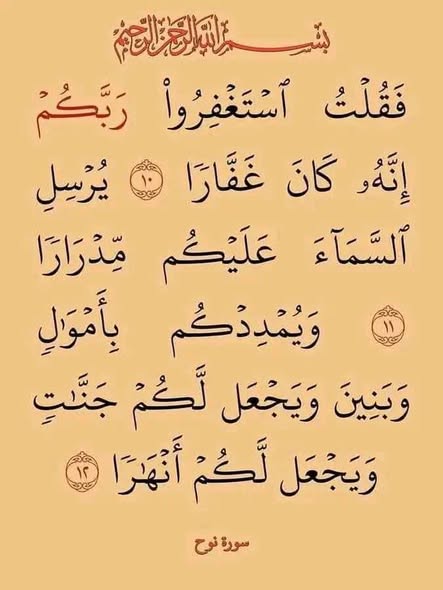 بِسْمِ اللَّهِ الرَّحْمَٰنِ الرَّحِيمِ
فَقُلْتُ ٱسْتَغْفِرُوا۟ رَبَّكُمْ
إِنَّهُۥ كَانَ غَفَّارًا ١٠ يُرْسِلِ
ٱلسَّمَآءَ عَلَيْكُم مِّدْرَارًا
١١ وَيُمْدِدْكُم بِأَمْوَٰلٍ
وَبَنِينَ وَيَجْعَل لَّكُمْ جَنَّـٰتٍ
وَيَجْعَل لَّكُمْ أَنْهَـٰرًا ١٢
سورة نوح